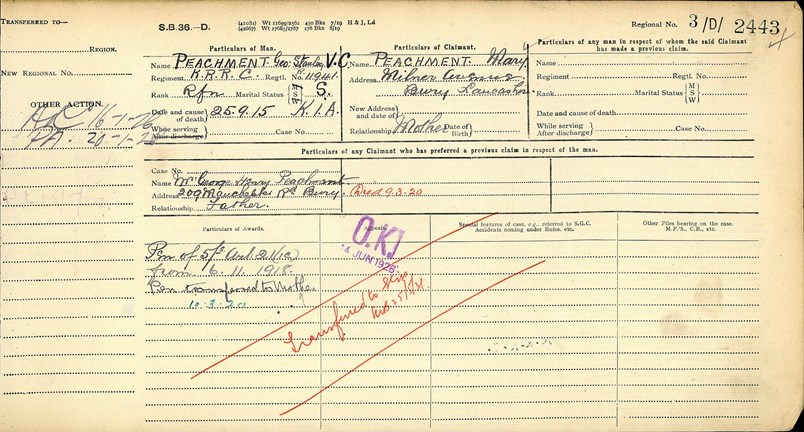 TRANSFERRED TO—
REGION.
NEW REGIONAL No.
OTHER ACTION.
16-1-
20-1-
S.B. 36.—D.
(41681) Wt 11699/2561 450 Bks 7/19 H & J, Ld
Regional No. 3/D/ 2443
Particulars of Man.
Name PEACHMENT Geo: Stanley V.C
Regiment K.R.R.C. Regtl. No. 11941.
Rank Rfn Marital Status M S W S.
Date and cause of death 25.9.15 K.I.A.
While serving
After discharge Case No.
Particulars of Claimant.
Name PEACHMENT Mary
Address Milner Avenue
Bury Lancashire
New Address and date of
Relationship Mother Date of Birth
Particulars of any man in respect of whom the said Claimant has made a previous claim.
Name
Regiment Regtl. No.
Rank Marital Status M S W
Date and cause of death.
While serving
After discharge Case No.
Particulars of any Claimant who has preferred a previous claim in respect of the man.
Case No.
Name Mr George Henry Peachment
Address 209 Manchester Rd Bury. Died 9.3.20
Relationship Father.
Particulars of Awards.
Appeals.
Special features of case, e.g., referred to S.G.C. Accidents coming under Rules. etc.
Other Files bearing on the case. M.F.'S., C.R., etc.
Pen of 5/- (Art 21(1c)
from 6.11.1918.
Pen transferred to Mother
10.3.20
O.K.
4 JUN 1926
transferred to